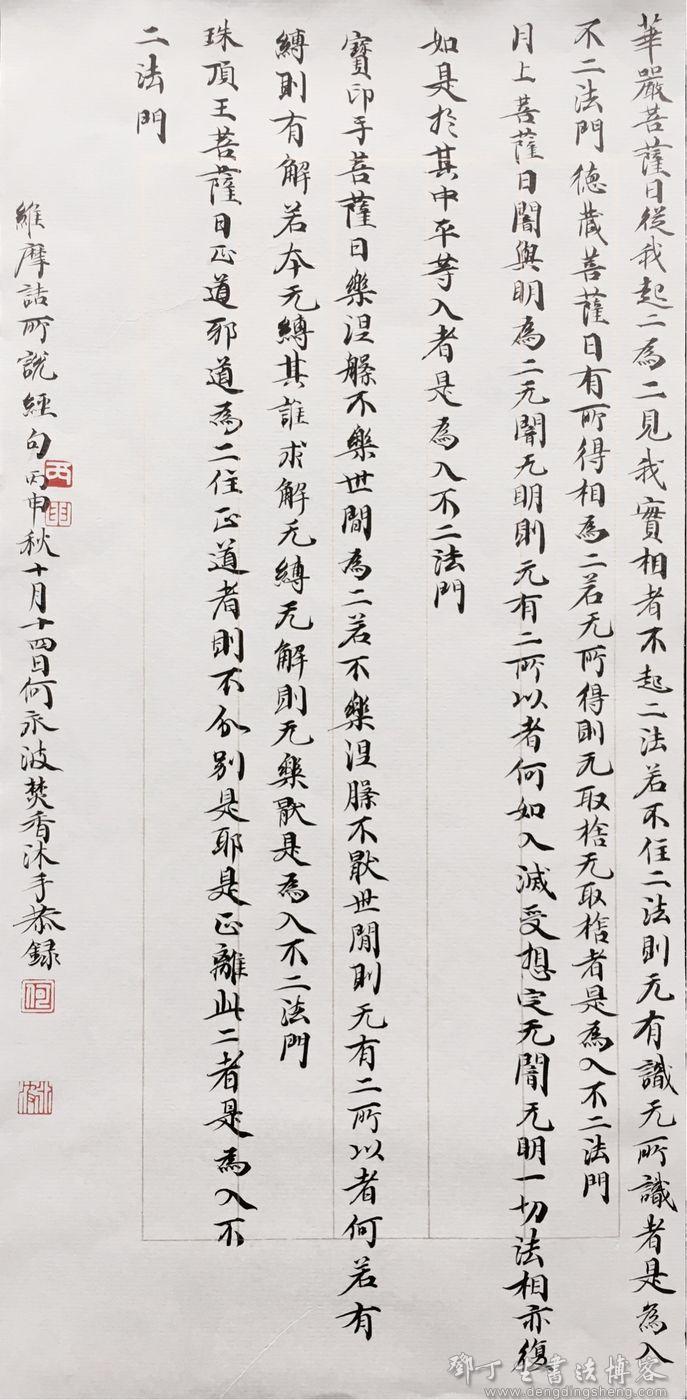 華嚴菩薩曰從我起二為二見我實相者不起二法若不住二法則无有識无所識者是為入
不二法門 德藏菩薩曰有所得相為二若无所得則无取捨无取捨者是為入不二法門
月上菩薩曰闇與明為二无闇无明則无有二所以者何如入滅受想定无闇无明一切法相亦復
如是於其中平等入者是為入不二法門
寶印手菩薩曰樂涅槃不樂世間為二若不樂涅槃不厭世間則无有二所以者何若有
縛則有解若本无縛其誰求解无縛无解則无樂厭是為入不二法門
珠頂王菩薩曰正道邪道為二住正道者則不分別是耶是正離此二者是為入不
二法門
維摩詰所說經句丙申秋十月十四日何永波焚香沐手恭録
丙申
何
鄧丁生書法博客
www.dengdingsheng.com